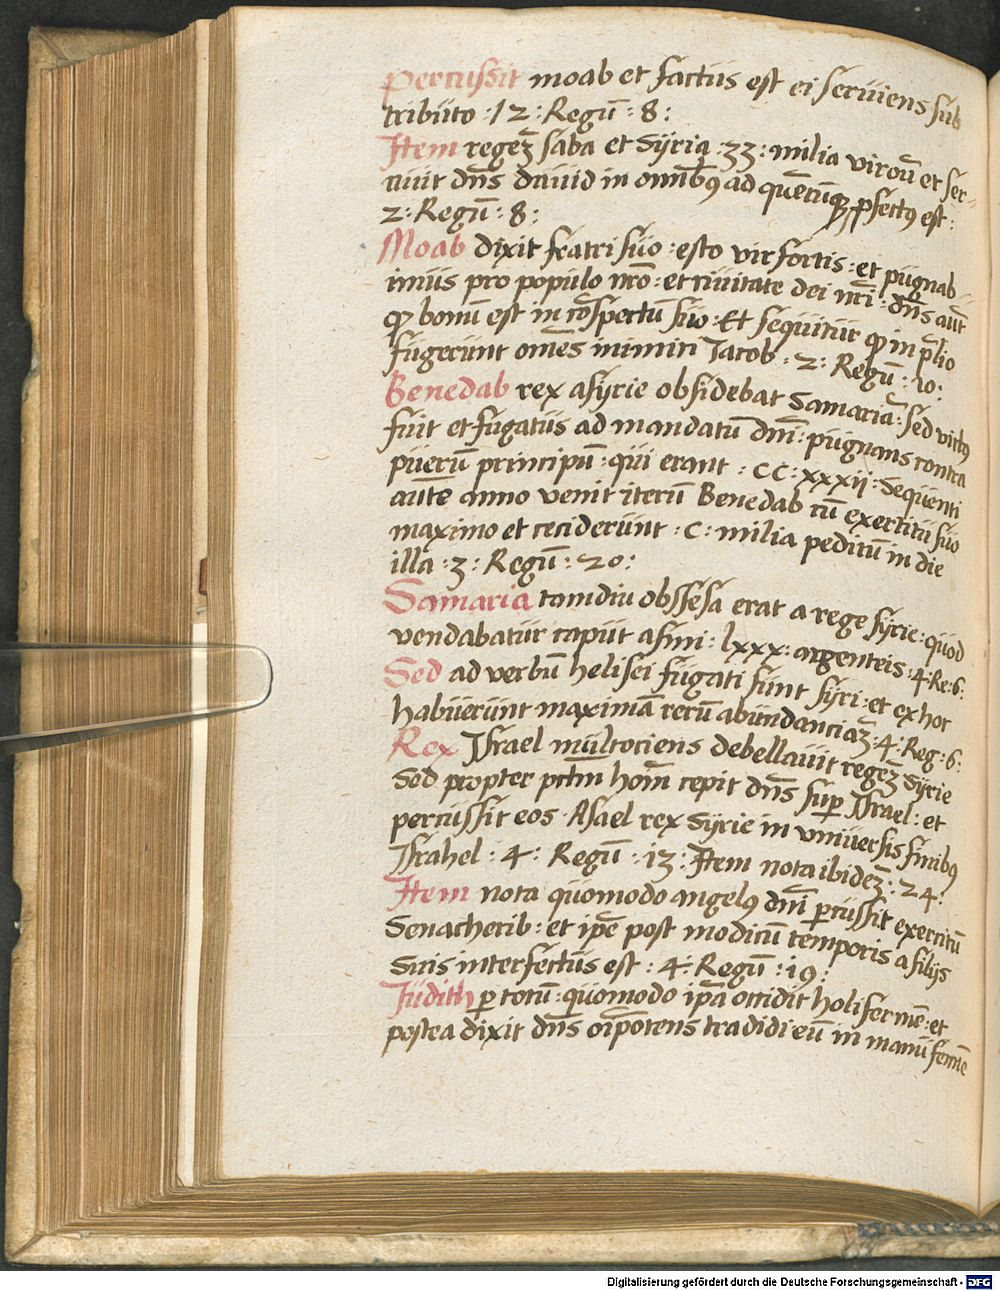 Percussit moab et factus est ei serviens sub
tributo ·12 : Regū : 8 :
Item regeʒ saba et Syria ·33 : milia virorū et ser-
viuit dn̄s dauid in omnibꝰ ad quēcūqꝫ ꝓfectꝰ est :
2 : Regū : 8 :
Moab dixit fratri suo : esto vir fortis : et pugnab-
imus pro populo nr̄o : et civitate dei nr̄i : dn̄s aūt
qꝫ bonū est in cōspectu suo · Et sequitur qꝫ in p̄lio
fugerunt om̄es inimici Jacob · 2 : Regū : 10 :
Benedab rex asyrie obsidebat Samaria : sed victꝰ
fuit et fugatus ad mandatū dn̄i : pugnans contra
puerū principū : qui erant : CC : xxxij : Sequenti
aūte anno venit iterū Benedab cū exercitu suo
maximo et ceciderunt : C : milia peditū in die
illa : 3 : Regū : 20 :
Samaria tamdiu obssesa erat a rege syrie : quod
vendabatur caput asini : lxxx : argenteis : 4 : Re : 6 :
Sed ad verbū helisei fugati sunt syri : et ex hoc
habuerunt maximā rerū abundanciaʒ : 4 : Reg : 6 :
Rex Israel multociens debellavit regeʒ Syrie
Sed propter pctm̄ hoīm cepit dn̄s suꝑ Israel : et
percussit eos Asael rex Syrie in vniversis finibꝰ
Israhel : 4 : Regū : 13 : Item nota ibideʒ : 24 :
Item nota quomodo angelꝰ dn̄i ꝑcussit exercitū
Senacherib : et ip̄e post modicū temporis a filijs
Suis interfectus est : 4 : Regū : 19 :
Judith ꝑ totū : quomodo ip̄a occidit holifernē : et
postea dixit dn̄s oīpotens tradidi eū in manū femīe
Digitalisierung gefördert durch die Deutsche Forschungsgemeinschaft - DFG